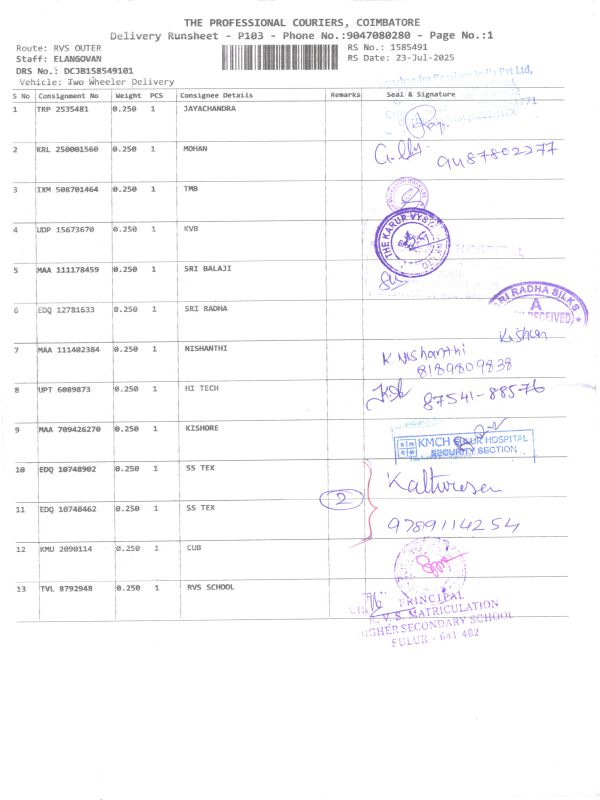 THE PROFESSIONAL COURIERS, COIMBATORE
Delivery Runsheet - P103 - Phone No.:9047080280 - Page No.:1
Route: RVS OUTER
RS No.: 1585491
Staff: ELANGOVAN
RS Date: 23-Jul-2025
DRS No.: DCJB158549101
Vehicle: Two Wheeler Delivery
S No Consignment No Weight PCS Consignee Details Remarks Seal & Signature
1 TRP 2535481 0.250 1 JAYACHANDRA
2 KRL 250001560 0.250 1 MOHAN 9487802277
3 IXM 508701464 0.250 1 TMB
4 UDP 15673670 0.250 1 KVB
THE KARUR VYSYA
HOSPITAL
5 MAA 111178459 0.250 1 SRI BALAJI
6 EDQ 12781633 0.250 1 SRI RADHA
SRI RADHA SILKS
A
RECEIVED)
Kishan
7 MAA 111402384 0.250 1 NISHANTHI K Nishanthi
8189809838
8 UPT 6089873 0.250 1 HI TECH 87541-88576
9 MAA 709426270 0.250 1 KISHORE
KMCH SULUR HOSPITAL
SECURITY SECTION
10 EDQ 10748902 0.250 1 SS TEX
2
11 EDQ 10748462 0.250 1 SS TEX 9789114254
12 KMU 2090114 0.250 1 CUB
13 TVL 8792948 0.250 1 RVS SCHOOL
PRINCIPAL
R. V. S. MATRICULATION
HIGHER SECONDARY SCHOOL
SULUR - 641 402